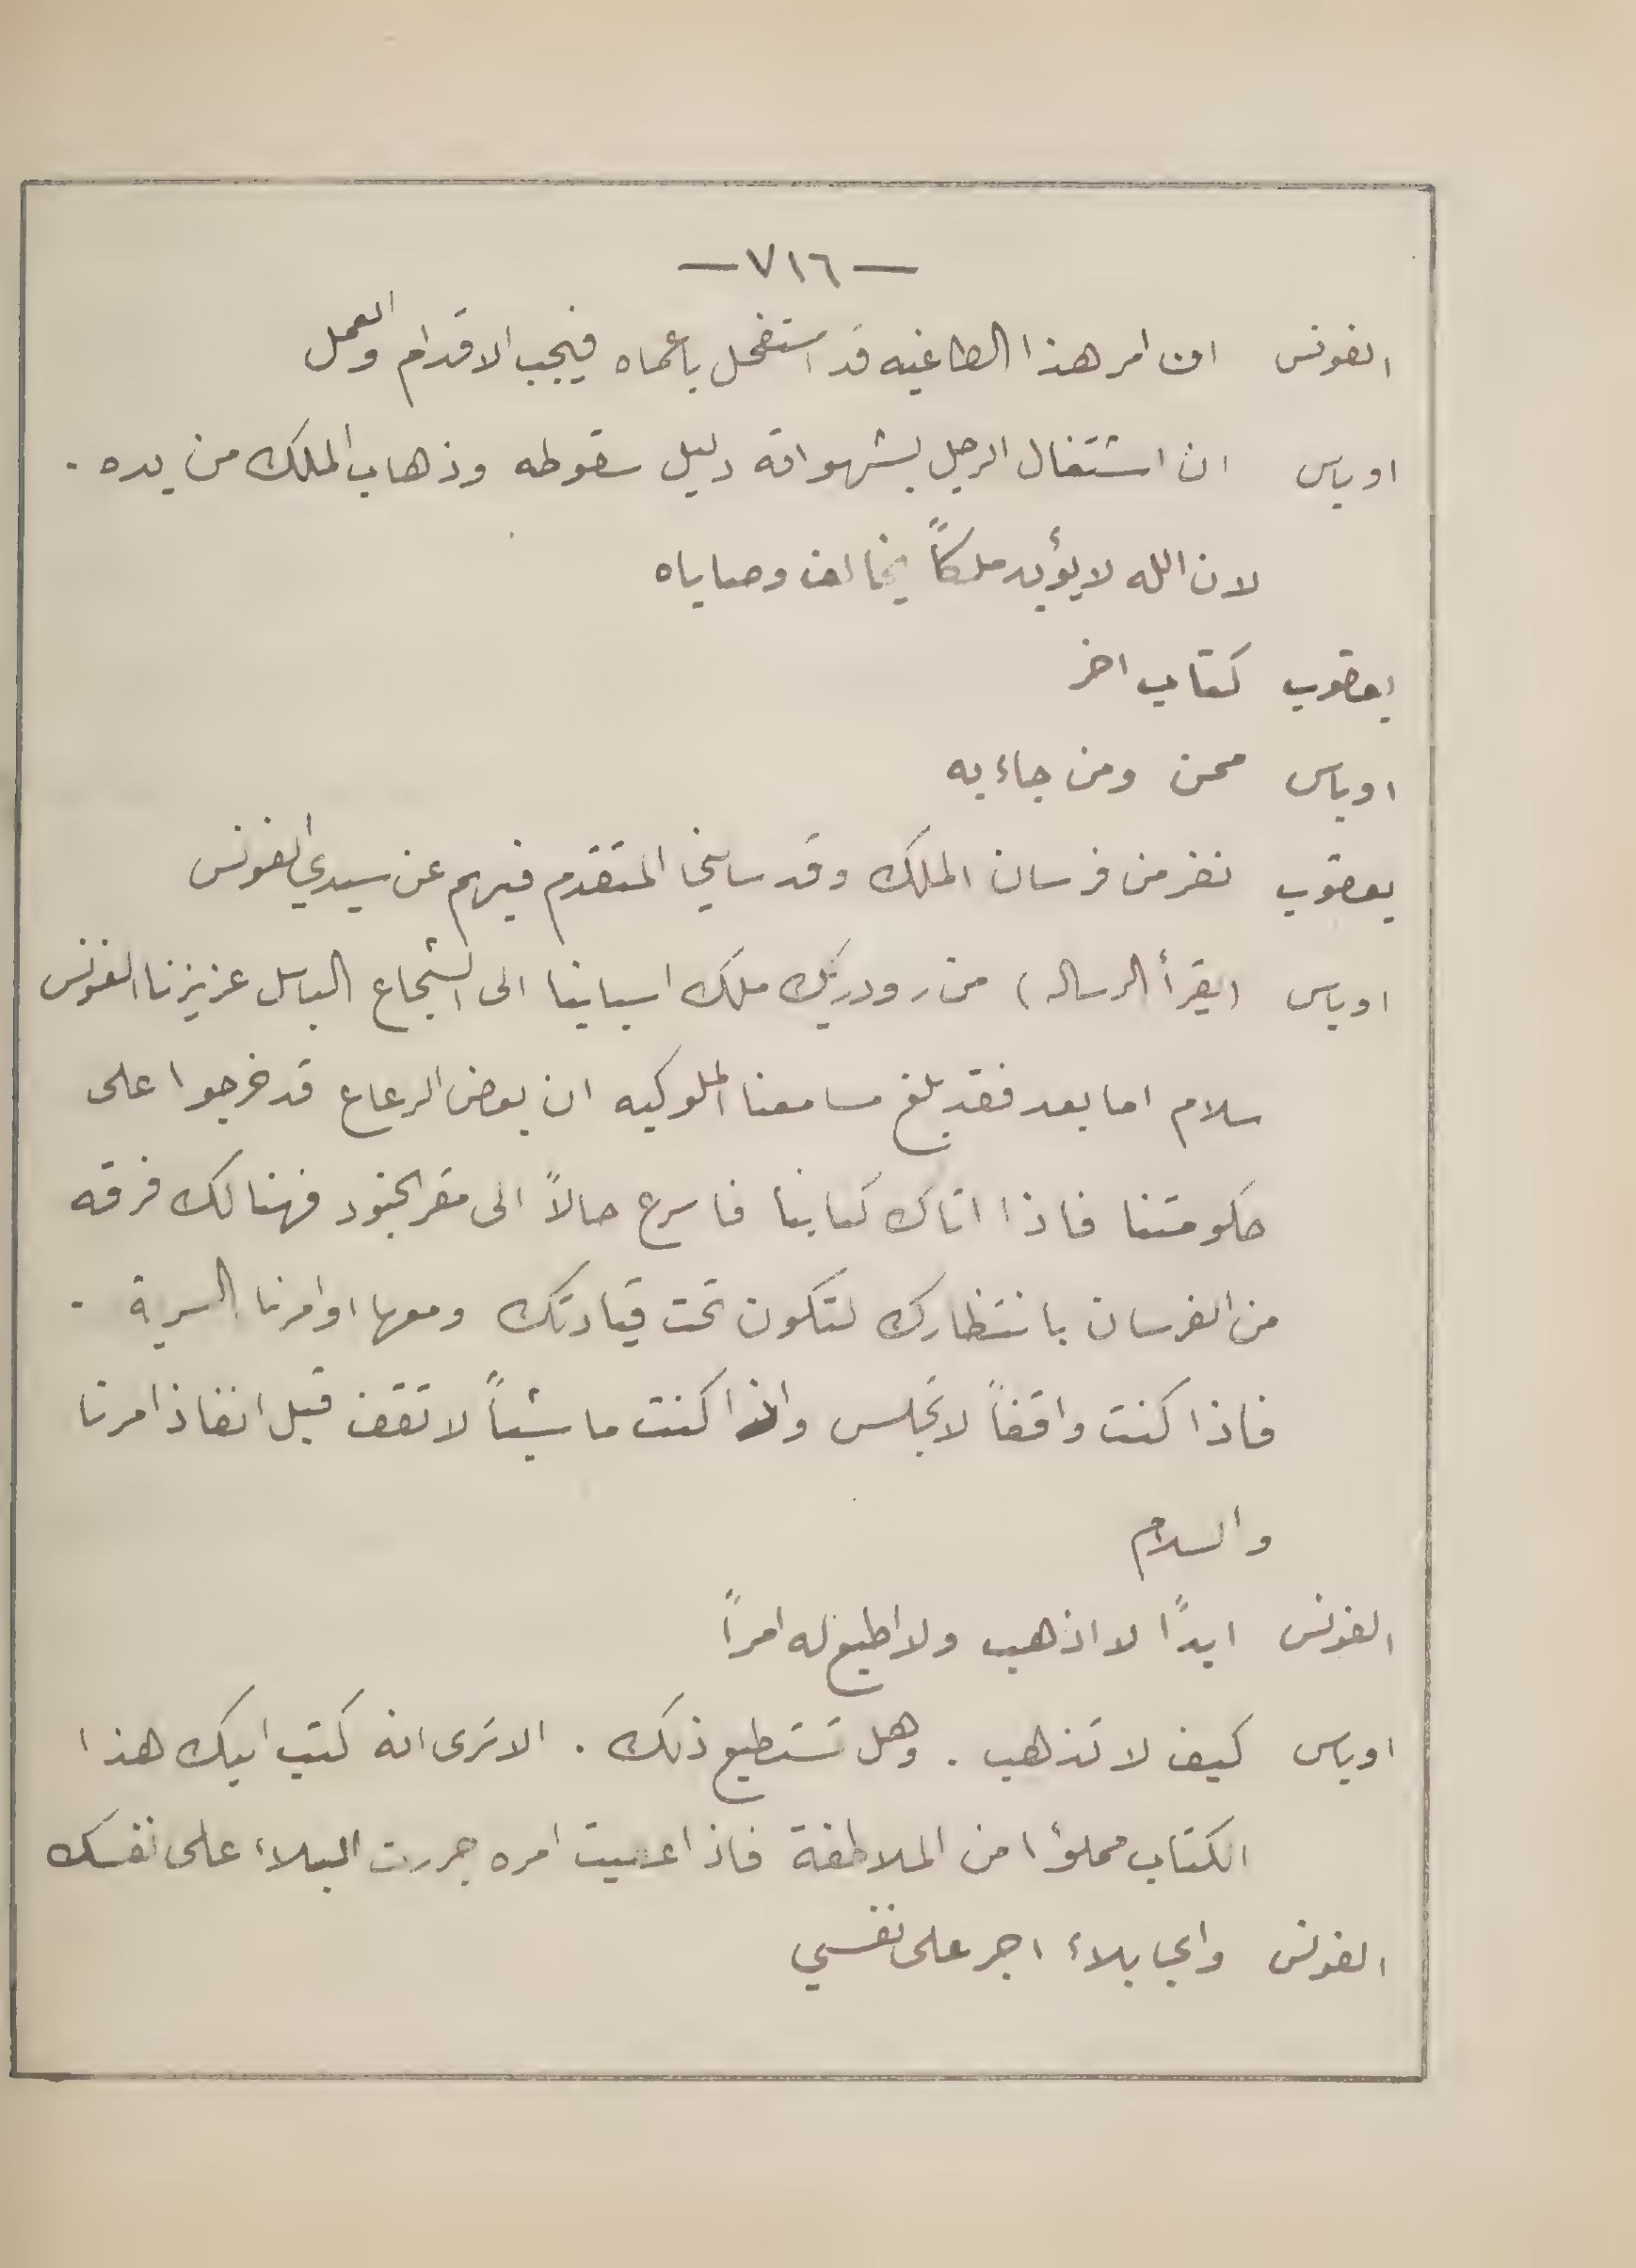 — ٧١٦ —
الفونس ان امر هذا الطاغيه قد استفحل ياعماه فيجب الاقدام والعمل
اوباس ان اشتغال الرجل بشهواته دليل سقوطه وذهاب الملك من يده .
لان الله لا يؤيد ملكاً يخالف وصاياه
يعقوب كتاب اخر
اوباس ممن ومن جاء به
يعقوب نفر من فرسان الملك وقد سالني المتقدم فيهم عن سيدي الفونس
اوباس (يقرأ الرساله) من رودريك ملك اسبانيا الى الشجاع الباسل عزيزنا الفونس
سلام اما بعد فقد بلغ مسامعنا الملوكيه ان بعض الرعاع قد خرجوا على
حكومتنا فاذا اتاك كتابنا فاسرع حالاً الى مقر الجنود فهنالك فرقه
من الفرسان بانتظارك لتكون تحت قيادتك ومعها اوامرنا السرية .
فاذا كنت واقفاً لا تجلس واذا كنت ماشياً لا تقف قبل انفاذ امرنا
والسلام
الفونس ابداً لا اذهب ولا اطيع له امراً
اوباس كيف لا تذهب . وهل تستطيع ذلك . الا ترى انه كتب اليك هذا
الكتاب مملوًا من الملاطفة فاذا عصيت امره جررت البلاء على نفسك
الفونس واي بلاء اجر على نفسي